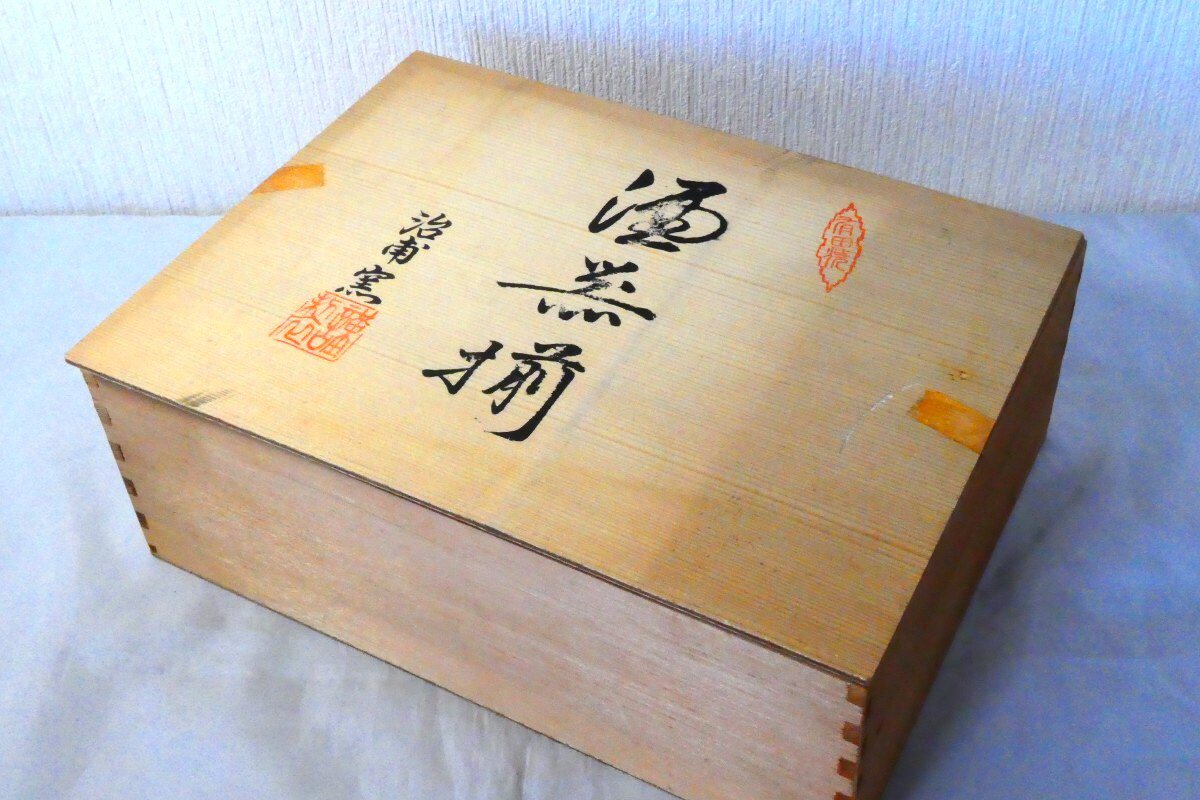 有田焼
酒器揃
治甫窯